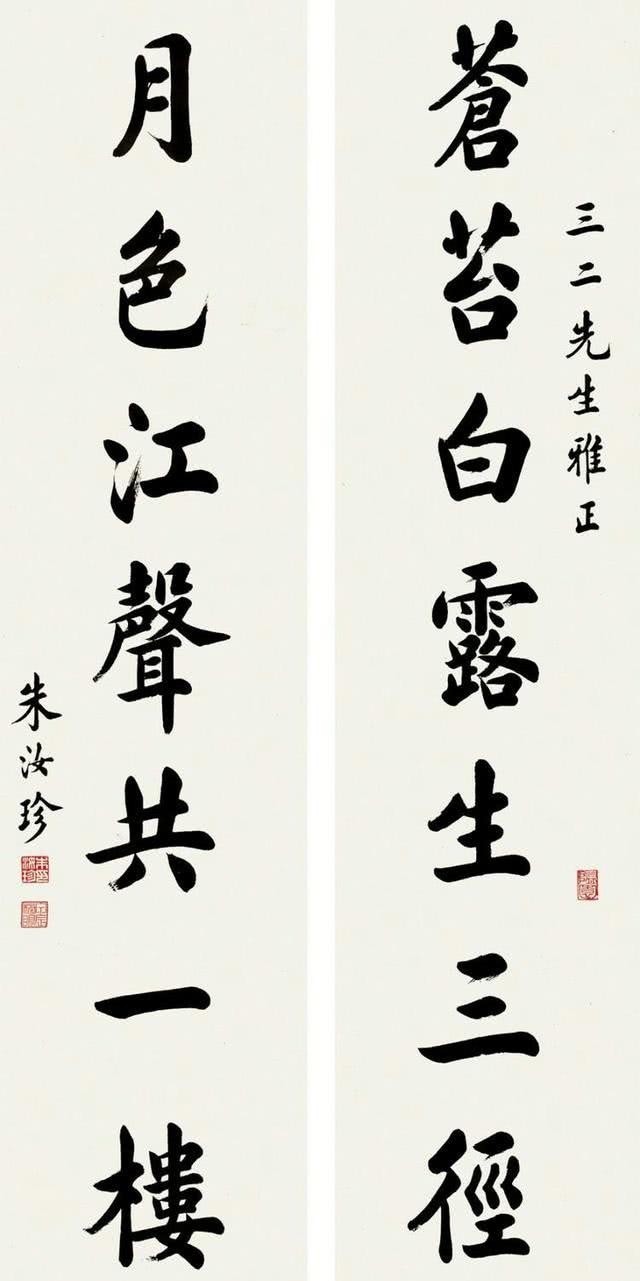 三二先生雅正
蒼苔白露生三徑
月色江聲共一樓
朱汝珍